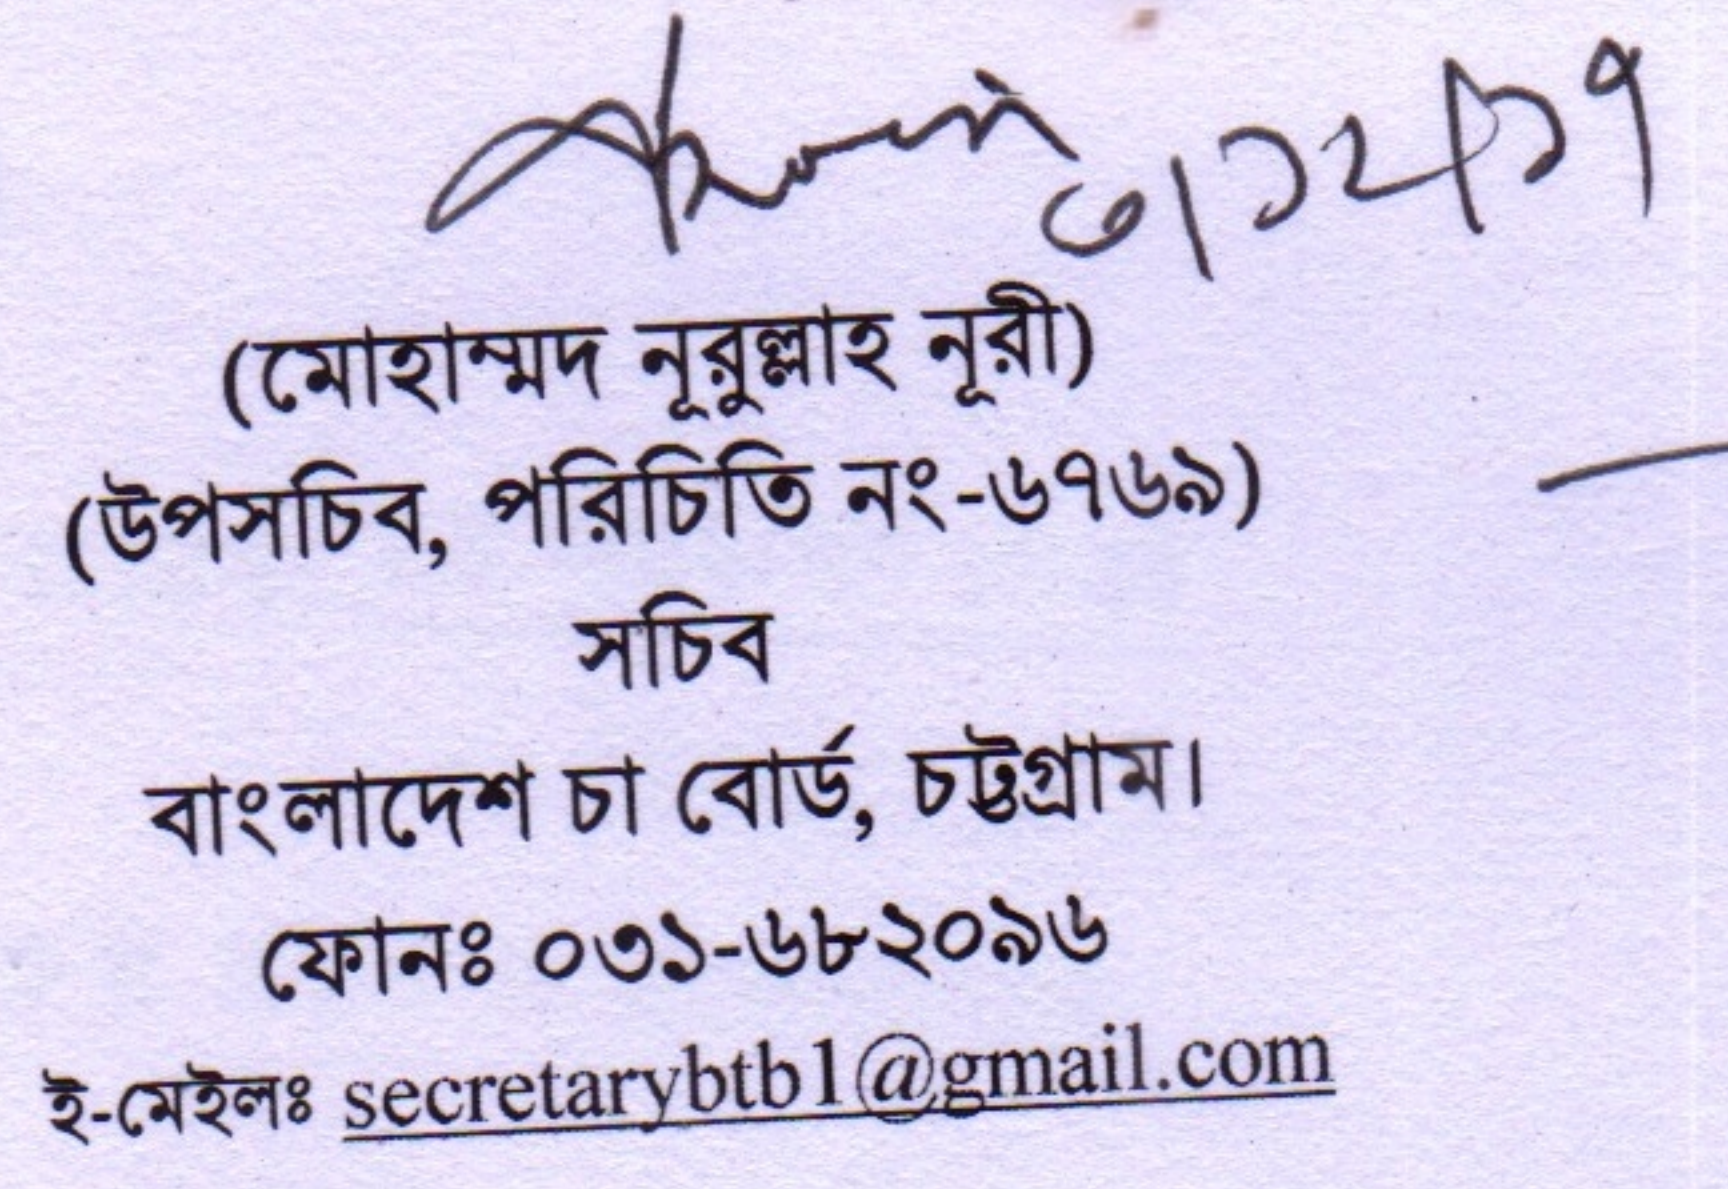 ৩/১২/১৭
(মোহাম্মদ নূরুল্লাহ নূরী)
(উপসচিব, পরিচিতি নং-৬৭৬৯)
সচিব
বাংলাদেশ চা বোর্ড, চট্টগ্রাম।
ফোনঃ ০৩১-৬৮২০৯৬
ই-মেইলঃ secretarybtb1@gmail.com